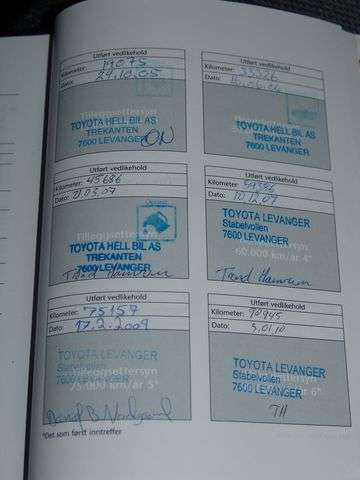 Utført vedlikehold
Kilometer: 19075
Dato: 24.10.05
Tilleggsettersyn
TOYOTA HELL BIL AS
TREKANTEN
7600 LEVANGER
ON
Utført vedlikehold
Kilometer: 33326
Dato:
TOYOTA HELL BIL AS
TREKANTEN
7600 LEVANGER
Utført vedlikehold
Kilometer: 45686
Dato: 21.03.07
Tilleggsettersyn
TOYOTA HELL BIL AS
TREKANTEN
7600 LEVANGER
Utført vedlikehold
Kilometer: 59386
Dato: 10.12.07
TOYOTA LEVANGER
Stabelvollen
7600 LEVANGER
60 000 km/år 4*
Utført vedlikehold
Kilometer: 75157
Dato: 17.2.2009
Tilleggsettersyn
TOYOTA LEVANGER
Stabelvollen
7600 LEVANGER
75 000 km/år 5*
Utført vedlikehold
Kilometer: 90945
Dato: 5.01.10
TOYOTA LEVANGER
Stabelvollen
7600 LEVANGER
TH
*Det som først inntreffer